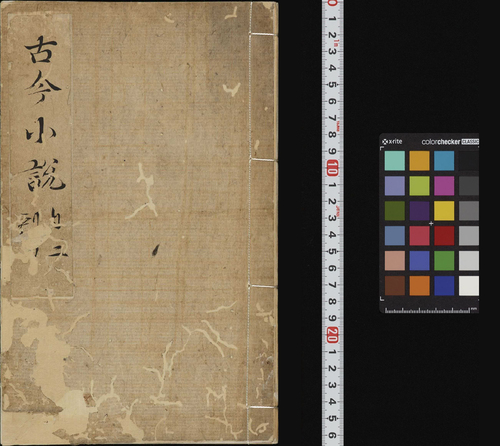 古今小説
x-rite
colorchecker CLASSIC
1
2
3
4
5
6
7
8
9
10
1
2
3
4
5
6
7
8
9
20
1
2
3
4
5
6
mm